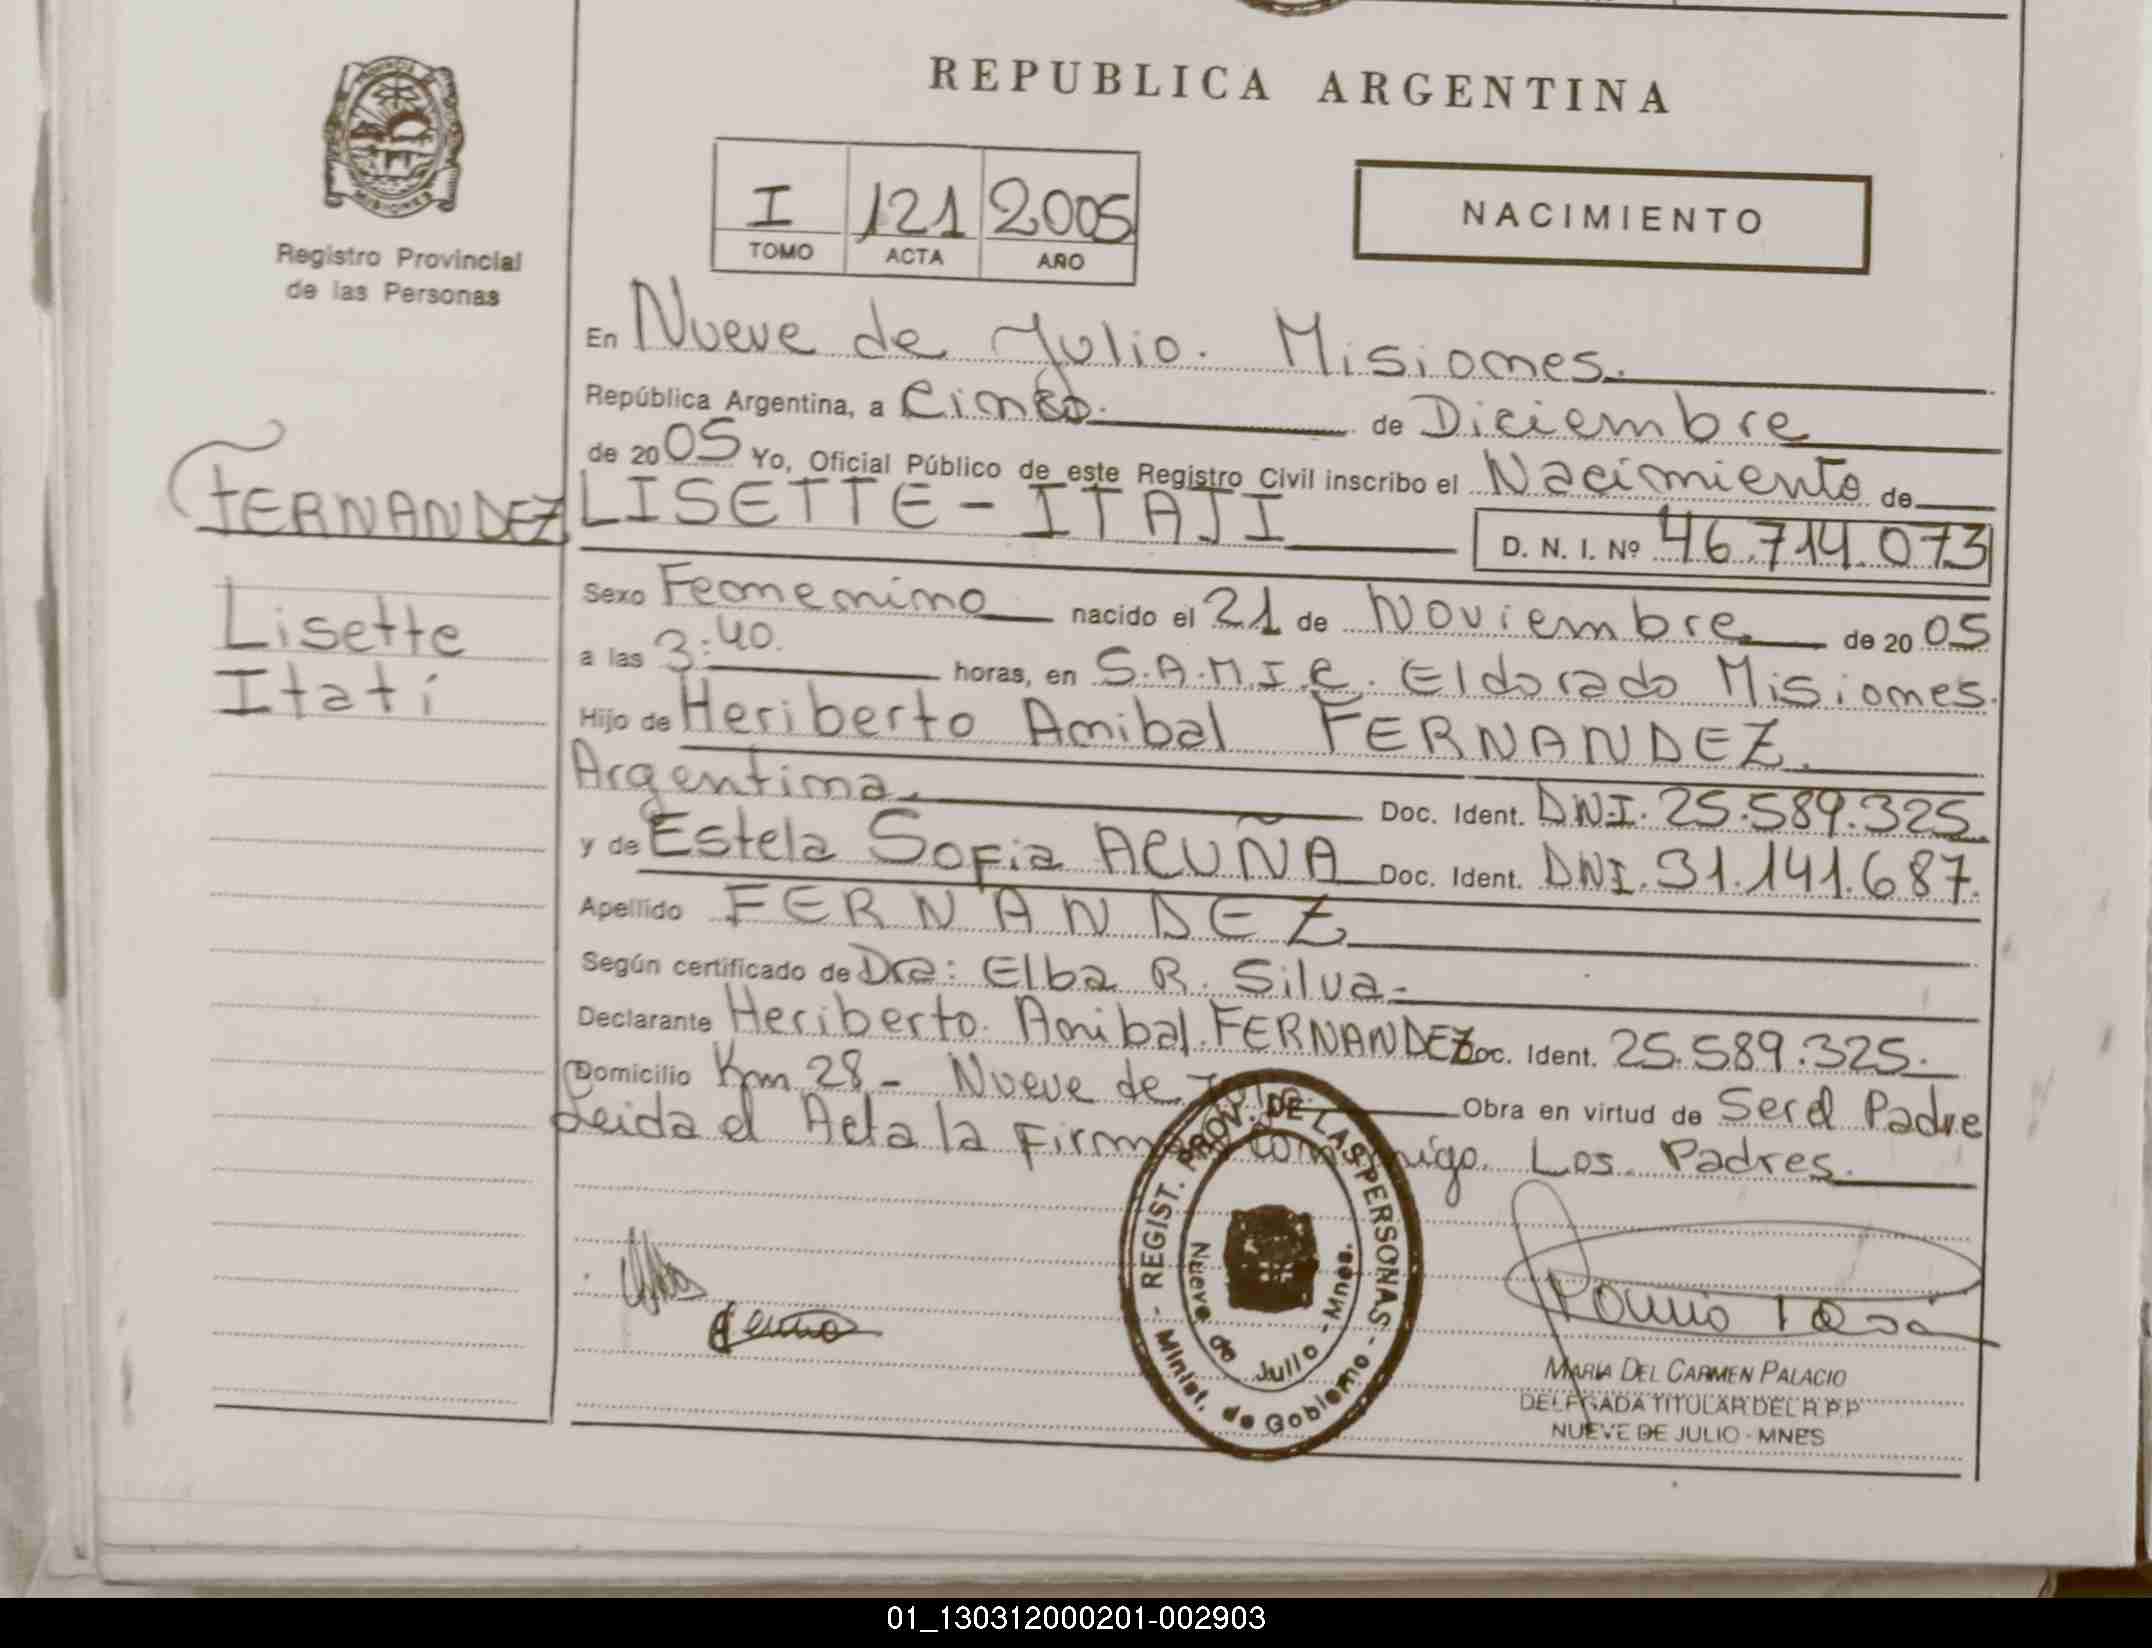 REPUBLICA ARGENTINA
PROVINCIA
MISIONES
Registro Provincial
de las Personas
I 121 2005
TOMO ACTA AÑO
NACIMIENTO
En Nueve de Julio. Misiones.
República Argentina, a Cinco. de Diciembre
de 2005 Yo, Oficial Público de este Registro Civil inscribo el Nacimiento de
FERNANDEZ LISETTE - ITATI
D. N. I. Nº 46.714.073
Lisette
Itatí
Sexo Femenino nacido el 21 de Noviembre de 2005
a las 3:40. horas, en S.A.M.I.C. Eldorado Misiones.
Hijo de Heriberto Anibal FERNANDEZ.
Argentina. Doc. Ident. DN.I. 25.589.325.
y de Estela Sofia ACUÑA Doc. Ident. DNI. 31.141.687.
Apellido FERNANDEZ
Según certificado de Dra: Elba R. Silva.-
Declarante Heriberto. Anibal. FERNANDEZ Doc. Ident. 25.589.325.
Domicilio Km 28 - Nueve de Obra en virtud de Ser el Padre
Leida el Acta la Firman conmigo. Los Padres.
REGIST. PROV. DE LAS PERSONAS
- Minist. de Gobierno -
Nueve de Julio - Mnes.
MARIA DEL CARMEN PALACIO
DELEGADA TITULAR DEL R P P
NUEVE DE JULIO - MNES
01_130312000201-002903